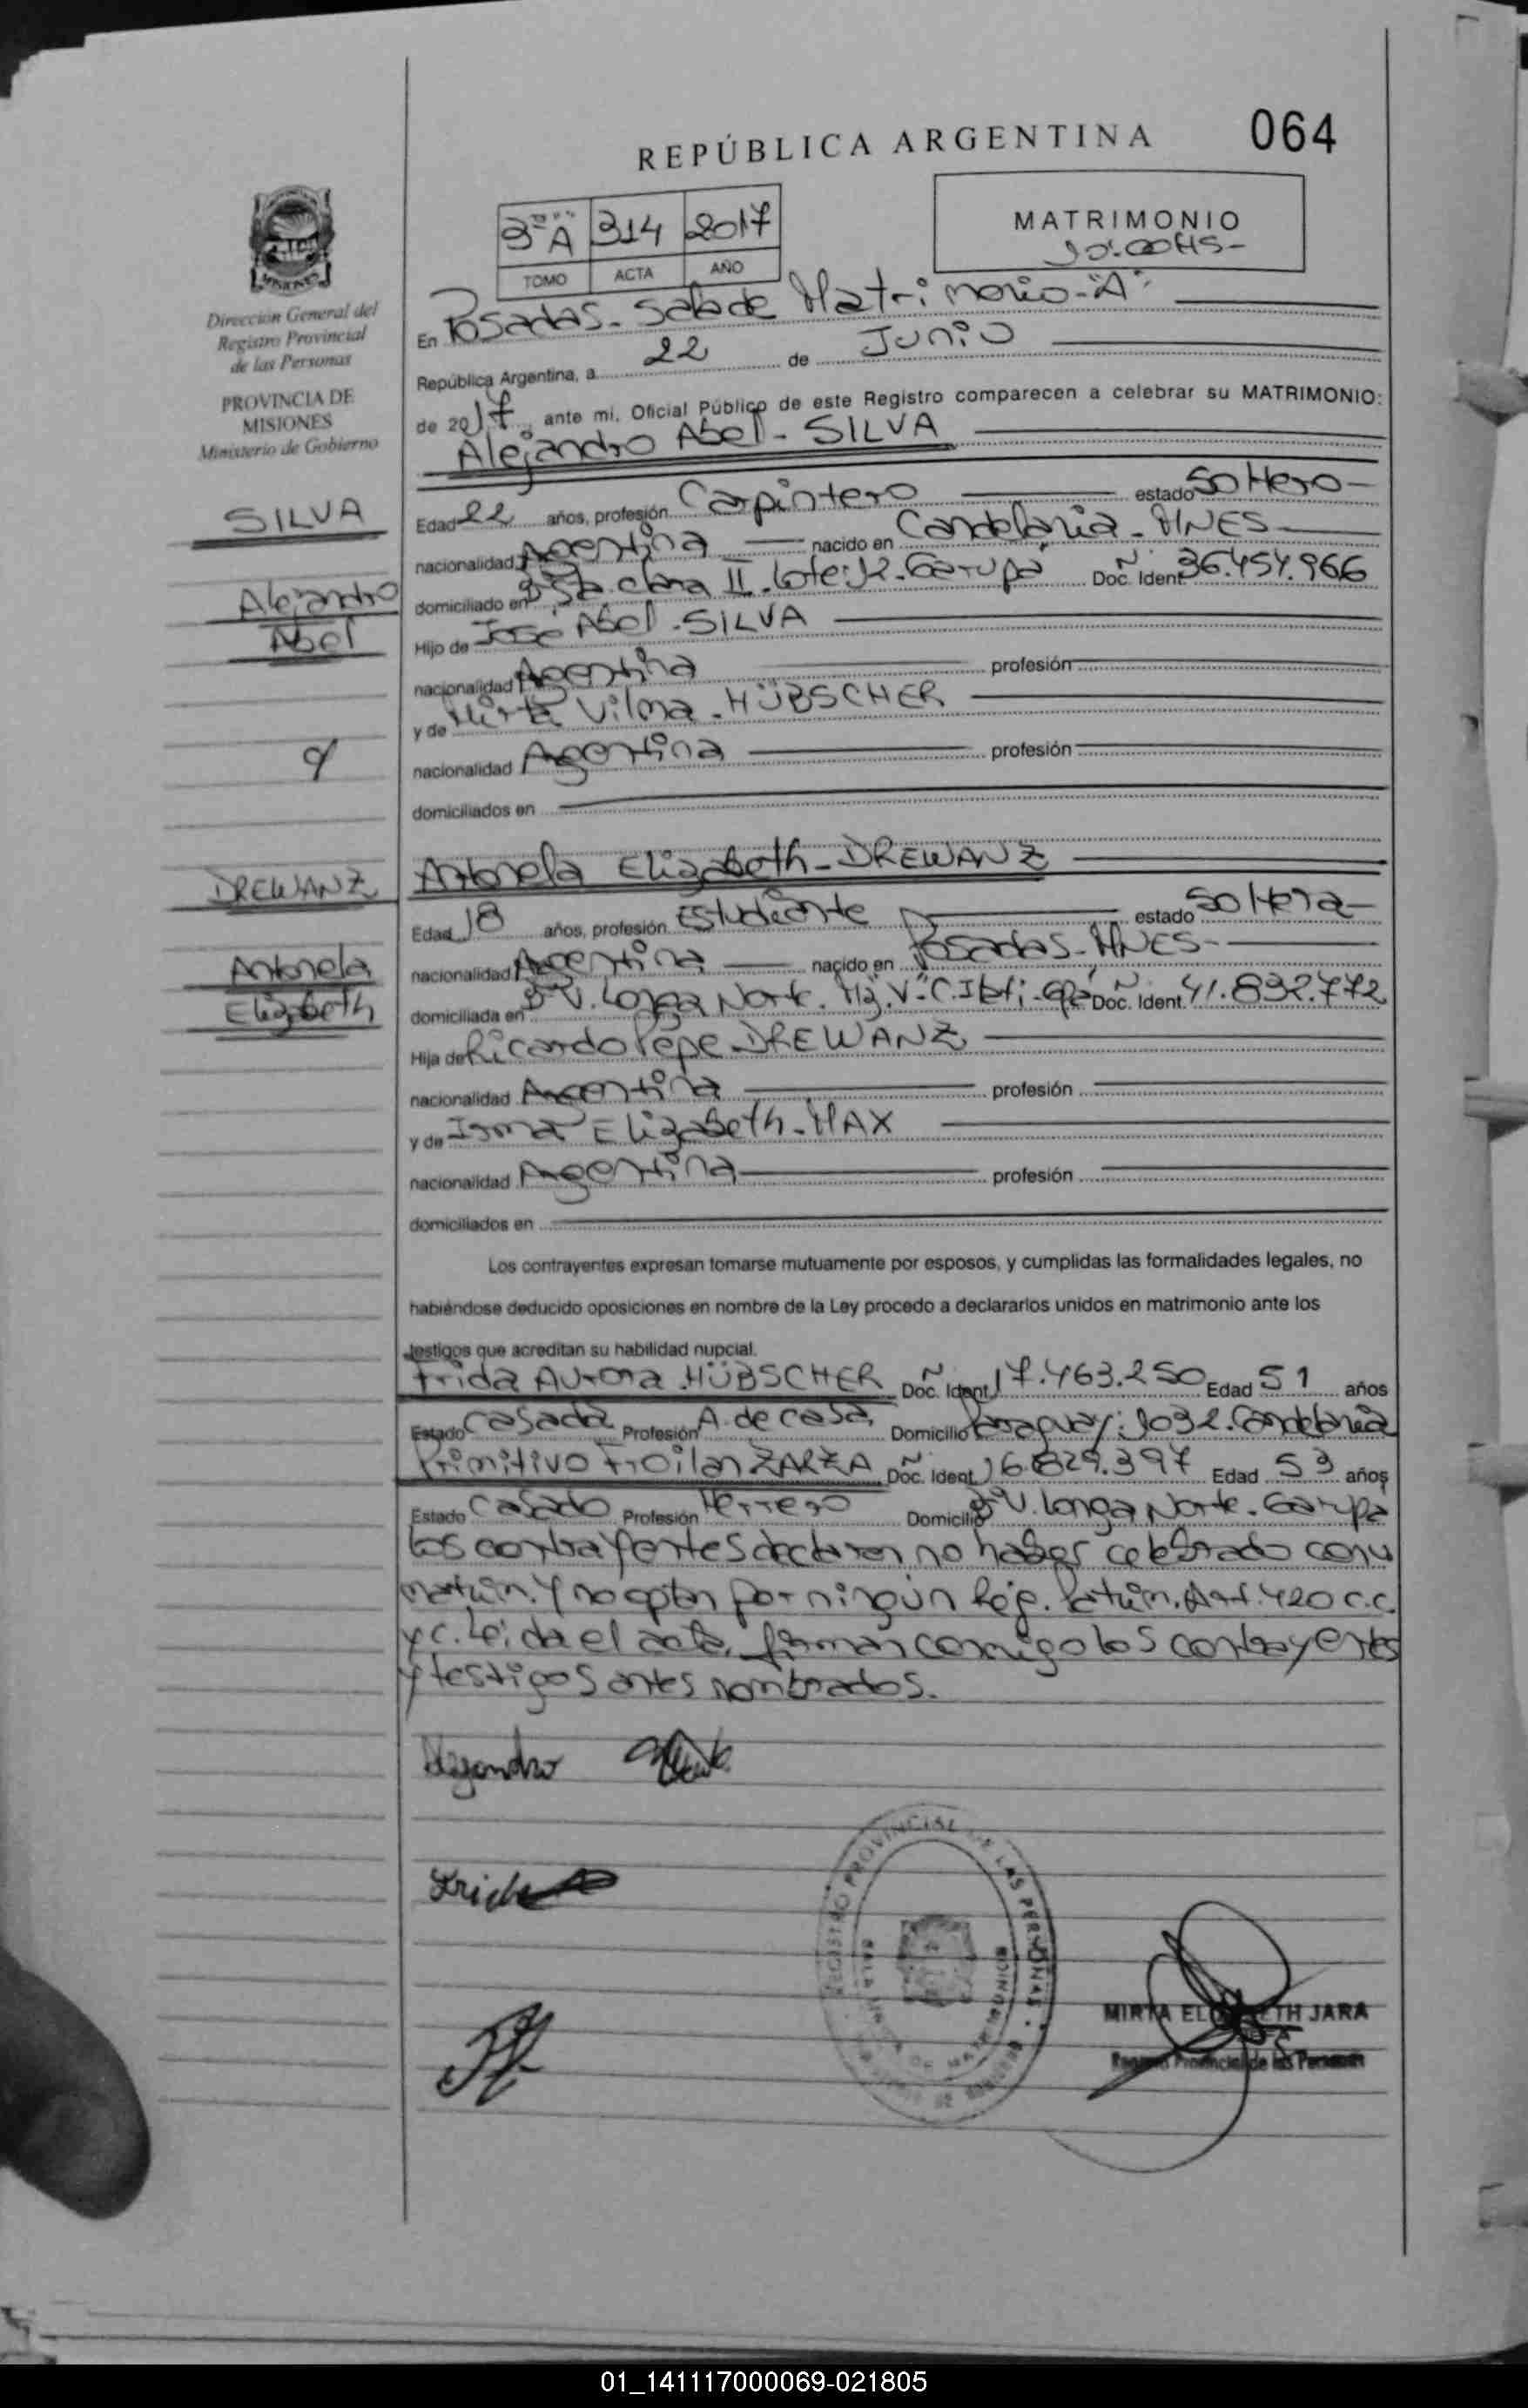 REPÚBLICA ARGENTINA
064
3º A 314 2017
TOMO ACTA AÑO
MATRIMONIO
10:00HS-
MISIONES
Dirección General del
Registro Provincial
de las Personas
PROVINCIA DE
MISIONES
Ministerio de Gobierno
SILVA
Alejandro
Abel
y
DREWANZ
Antonela
Elizabeth
En Posadas. Sala de Matrimonio-"A"
República Argentina, a 22 de Junio
de 2017 ante mi, Oficial Público de este Registro comparecen a celebrar su MATRIMONIO:
Alejandro Abel - SILVA
Edad 22 años, profesión Carpintero estado Soltero-
nacionalidad Argentina nacido en Candelaria. MNES-
domiciliado en Bº Sta. Clara II. Lote:12. Garupá Doc. Ident. 36.454.966
Hijo de José Abel - SILVA
nacionalidad Argentina profesión
y de Mirta Vilma. HÜBSCHER
nacionalidad Argentina profesión
domiciliados en
Antonela Elizabeth-DREWANZ
Edad 18 años, profesión Estudiante estado Soltera-
nacionalidad Argentina nacido en Posadas-MNES-
domiciliada en Bº V. Longa Norte. Mz. V- Doc. Ident. 41.832.772
Hija de Ricardo Pepe DREWANZ
nacionalidad Argentina profesión
y de Irma Elizabeth-MAX
nacionalidad Argentina profesión
domiciliados en
Los contrayentes expresan tomarse mutuamente por esposos, y cumplidas las formalidades legales, no
habiéndose deducido oposiciones en nombre de la Ley procedo a declararlos unidos en matrimonio ante los
testigos que acreditan su habilidad nupcial.
Frida Aurora HÜBSCHER Doc. Ident. 17.463.250 Edad 51 años
Estado Casada Profesión A. de casa, Domicilio Paraguay: 1032. Candelaria
Primitivo Froilan ZARZA Doc. Ident. 16.829.397 Edad 53 años
Estado Casado Profesión Herrero Domicilio Bº V. Longa Norte. Garupá
Los contrayentes declaran no haber celebrado conv.
matrim. y no optan por ningún Rég. Patrim. Art. 420 C.C.
y C. Leída el acta, firman conmigo los contrayentes
y testigos antes nombrados.
Alejandro
Frida
REGISTRO PROVINCIAL DE LAS PERSONAS
MIRTA ELIZABETH JARA
Registro Provincial de las Personas
01_141117000069-021805